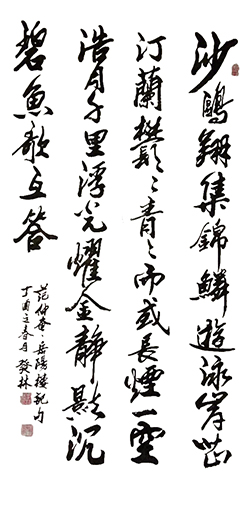 沙鷗翔集錦鱗遊泳岸芷
汀蘭欝〻青〻而或長煙一空
浩月千里浮光耀金靜影沉
碧魚歌互答
范仲淹岳陽樓記句
丁酉春月